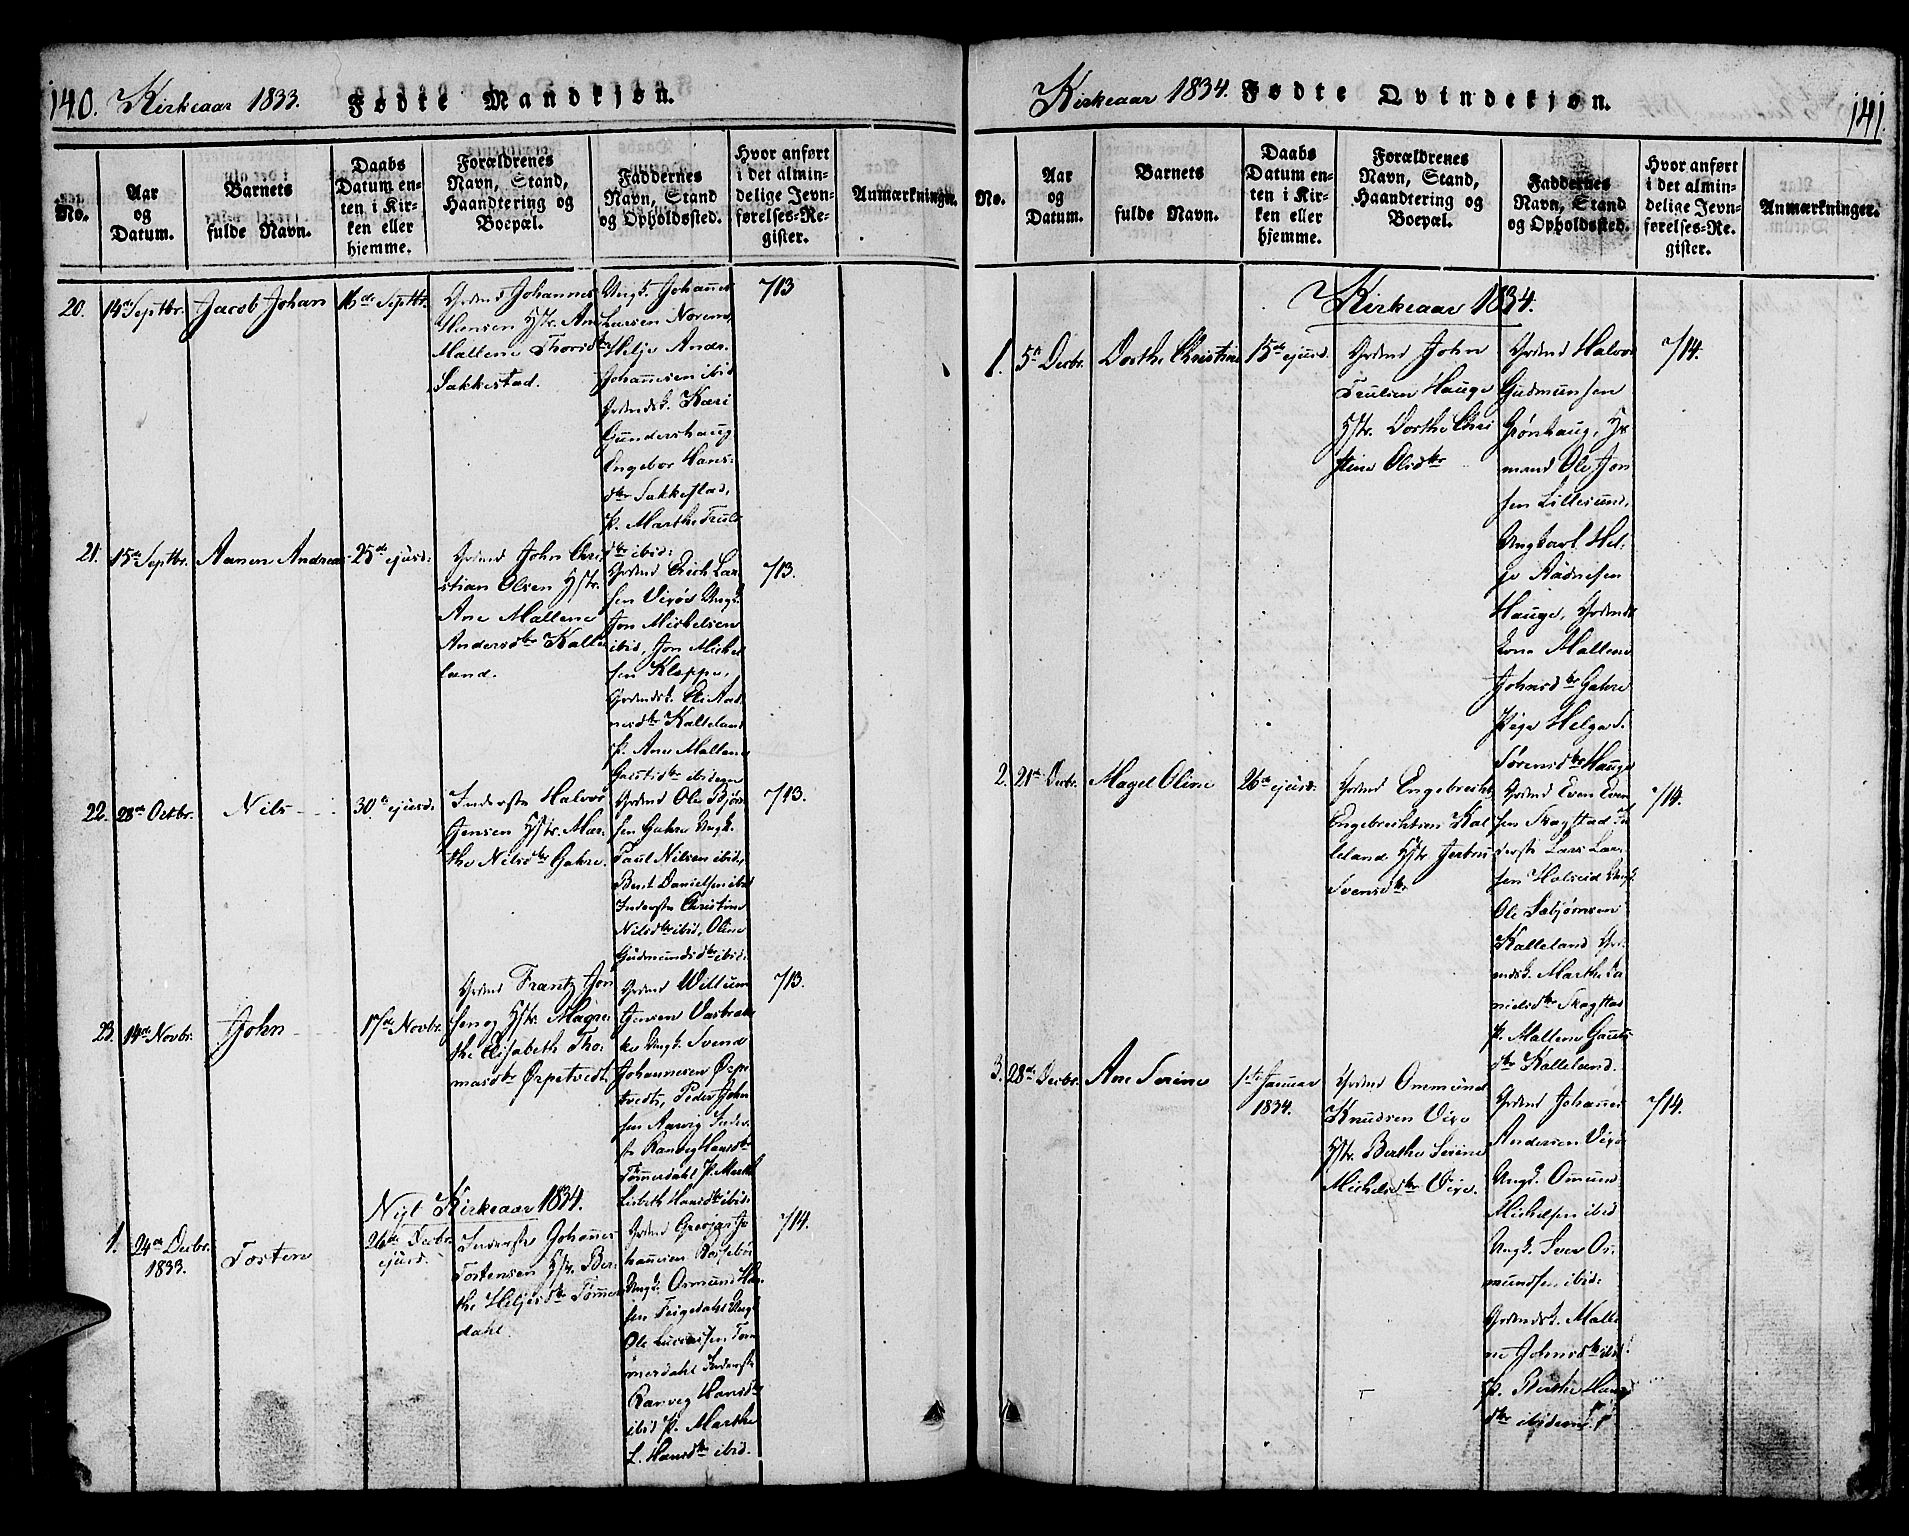 140. Kirkeaar 1833. Fødte Mandkjøn.
No.
Aar
og
Datum.
Barnets
fulde Navn.
Daabs
Datum en-
ten i Kir-
ken eller
hjemme.
Forældrenes
Navn, Stand,
Haandtering og
Boepæl.
Faddernes
Navn, Stand
og Opholdssted.
Hvor anført
i det almin-
delige Jevn-
førelses-Re-
gister.
Anmærkninger.
20. 14de Septbr. Jacob Johan 16de Septbr.
Grdmd Johannes
Hansen Hstr. Ane
Mallene Thorsdtr
Sakkestad.
Ungk. Johannes
Larsen Norem,
Helje Andr.
Johannesen ibid
Grdmdsk. Kari
Gundershaug
Engebor Hans-
dtr Sakkestad,
P. Marthe Truls
dtr ibid:
713
21. 15de Septbr. Aanen Andreas 25de ejusd:
Grdmd John Chri
stian Olsen Hstr.
Ane Mallene
Andersdtr Kalle
land.
Grdmd Erich Lar-
sen Vixøe Ungk.
Jon Michelsen
ibid, Jon Michel
sen Kleppe,
Grdmdsk. Eli Aad
nesdtr Kalleland
P. Ane Mallene
Gautsdtr ibidem
713.
22. 28de Octbr. Nils 30te ejusd:
Inderste Halvor
Jensen Hstr. Mar-
the Nilsdtr Gahre.
Grdmd Ole Bjørn
sen Gahre Ungk.
Paul Nilsen ibid,
Bent Danielsen ibid
Inderste Christine
Nilsdtr ibid, Oline
Gudmundsdtr ibid:
713.
23. 14de Novbr. John 17de Novbr.
Grdmd Frantz Jon
sen og Hstr. Magre
the Elisabeth Tho-
masdtr Ørpetvedt.
Grdmd Willum
Jensen Vasbrek-
ke Ungk. Svend
Johannesen Ørpe
tvedt, Peder John
sen Aarvig Inder-
st. Ranveg Hansdtr
Tømmerdahl P. Marthe
Lisbeth Hansdtr ibid:
713.
Nyt Kirkeaar 1834.
1. 24de Decbr.
1833.
Tosten
26de Decbr.
ejusd.
Inderste Johannes
Tostensen Hstr. Ber-
the Heljesdtr Tømmer
dahl.
Grdmd Gregar Jo
hannesen Rossebøe
Ungk. Osmund Han
sen Feigedahl Ungk
Ole Larsen Tøm
merdahl Inderste
Ranveg Hansdtr
ibid P. Marthe
L. Hansdtr ibid.
714.
Kirkeaar 1834. Fødte Qvindekjøn. 141.
No.
Aar
og
Datum.
Barnets
fulde Navn.
Daabs
Datum en-
ten i Kir-
ken eller
hjemme.
Forældrenes
Navn, Stand,
Haandtering og
Boepæl.
Faddernes
Navn, Stand
og Opholdssted.
Hvor anført
i det almin-
delige Jevn-
førelses-Re-
gister.
Anmærkninger.
Kirkeaar 1834.
1. 5te Decbr. Dorthe Christine 15de ejusd.
Grdmd John
Trulsen Hauge
Hstr. Dorthe Chri
stine Olsdtr
Grdmd Halvor
Gudmunsen
Grønhaug, Hs
mand Ole Jon
sen Lillesund,
Ungkarl Hel-
je Aadnesen
Hauge, Grdmds
kone Mallene
Johnsdtr Gahre
Pige Helga S.
Sørensdtr Hauge
714.
2. 21de Decbr. Magel Oline 26de ejusd:
Grdmd Engebrecht
Engebrechtsen Kal
leland, Hstr. Jertru
Svensdtr
Grdmd Even Even
sen Skogstad In
derste Lars Lar-
sen Holseid Ungk.
Ole Sebjørnsen
Kalleland Grd-
mdsk. Marthe Da
nielsdtr Skogstad
P. Mallene Gauts
dtr Kalleland.
714.
3. 28de Decbr. Ane Serine
1ste Januar
1834.
Grdmd Ommund
Knudsen Vixe
Hstr. Berthe Serine
Michelsdtr Vixe.
Grdmd Johannes
Andersen Vixe
Ungk. Omund
Michelsen ibid
Ungk. Sven Os-
mundsen ibid:
Grdmdsk. Malle
ne Johnsdtr ibid:
P. Berthe Hans
dtr ibidem.
714.